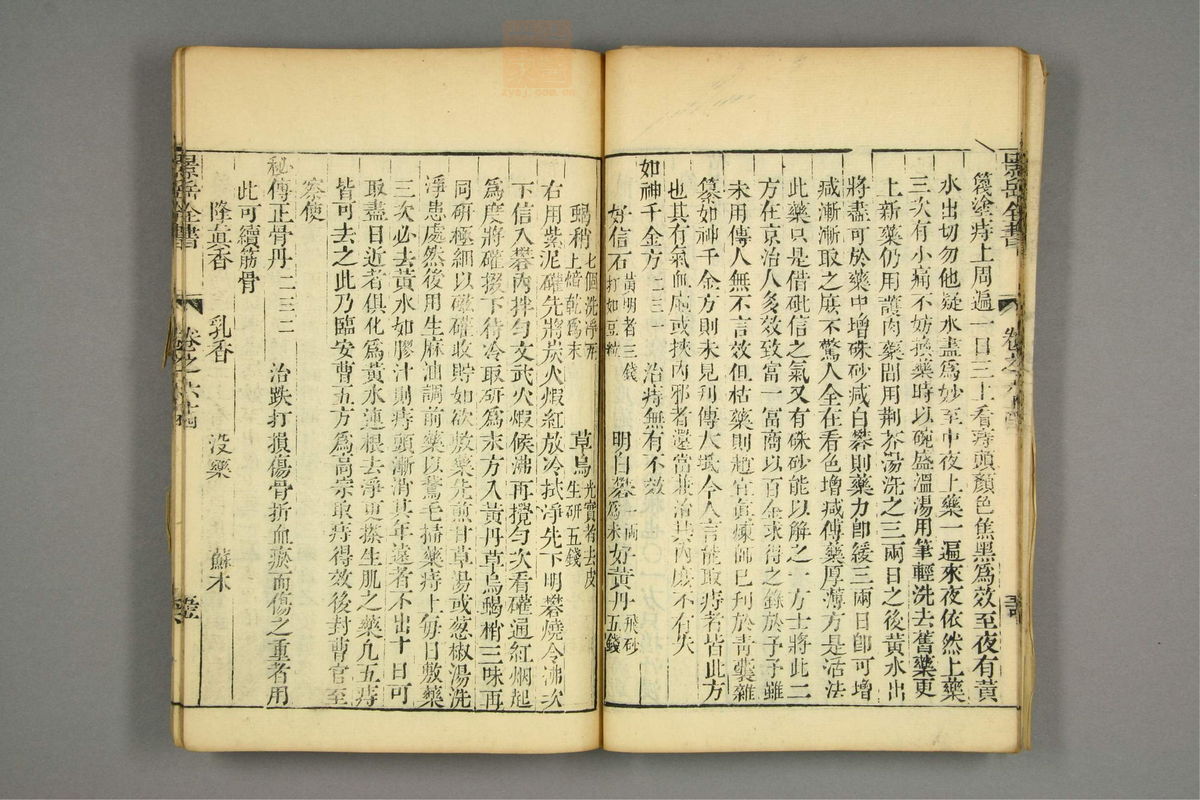 箋塗痔上周遍一日三上看痔頭顏色焦黑為效至夜有黃
水出切勿他疑水盡為妙至中夜上藥一遍來夜依然上藥
三次有小痛不妨換藥時以碗盛溫湯用筆輕洗去舊藥更
上新藥仍用護肉藥間用荆芥湯洗之三兩日之後黃水出
將盡可於藥中增硃砂減白礬則藥力卽緩三兩日卽可增
減漸漸取之庶不驚人全在看色增減傅藥厚薄方是活法
此藥只是借砒信之氣又有硃砂能以解之一方士將此二
方在京治人多效致富一富商以百金求得之錄於予予雖
未用傳人無不言效但枯藥則趙宜眞煉師已刋於青囊雜
纂如神千金方則未見刋傳大抵今人言能取痔者皆此方
也其有氣血虛或挾內邪者還當兼治其內庶不有失
如神千金方二三一　治痔無有不效
好信石黃明者三錢打如豆粒　明白礬一兩為末　好黃丹飛砂五錢
蝎稍七個洗淨瓦上焙乾為末　草烏光實者去皮生研五錢
右用紫泥礶先將炭火煆紅放冷拭淨先下明礬燒令沸次
下信入礬內拌勻文武火煆候沸再攪勻次看礶通紅烟起
為度將礶掇下待冷取研為末方入黃丹草烏蝎梢三味再
同研極細以磁礶收貯如欲敷藥先煎甘草湯或葱椒湯洗
淨患處然後用生麻油調前藥以鵞毛掃藥痔上每日敷藥
三次必去黃水如膠汁則痔頭漸消其年遠者不出十日可
取盡日近者俱化為黃水連根去淨更搽生肌之藥凡五痔
皆可去之此乃臨安曹五方為高宗取痔得效後封曹官至
察使
秘傳正骨丹二三二　治跌打損傷骨折血瘀而傷之重者用
此可續筋骨
降眞香　乳香　没藥　蘇木
景岳全書
卷之六十四
景岳全書
卷之六十四